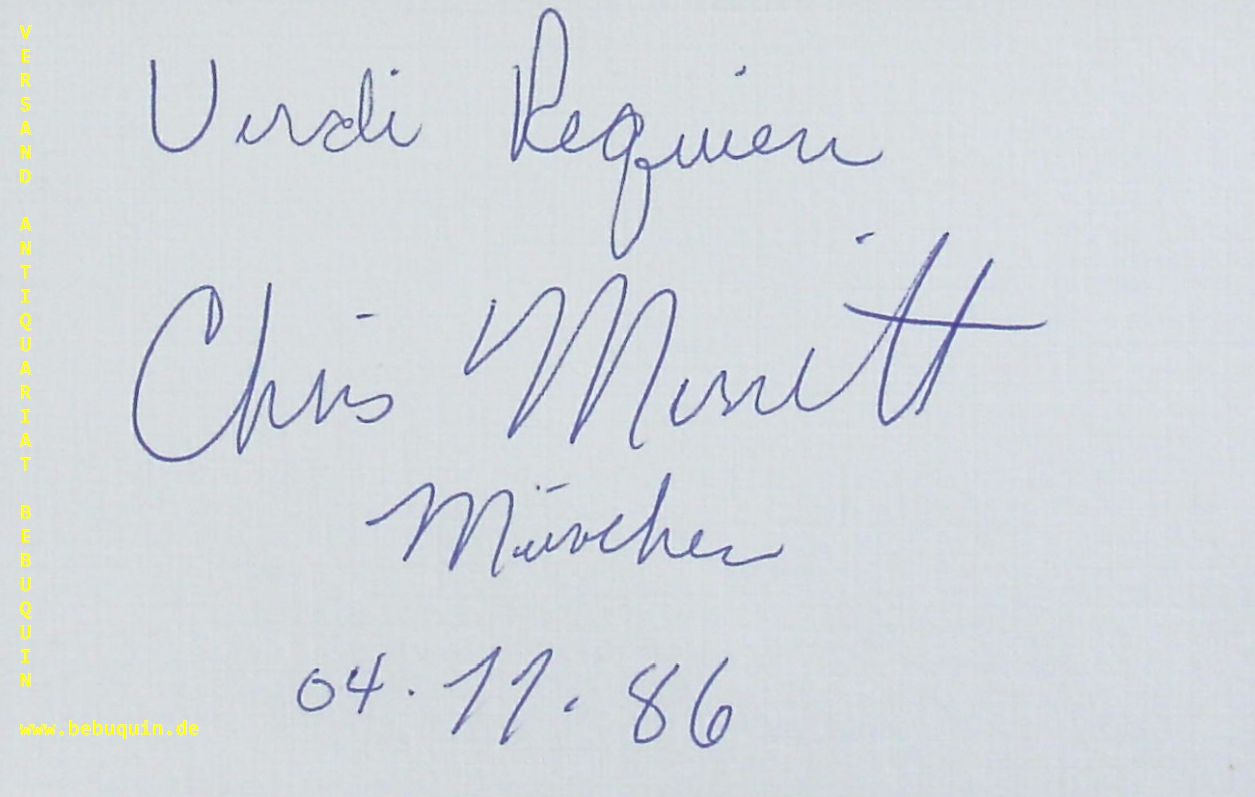 Verdi Requiem
Chris Merritt
München
04.11.86
VERSAND ANTIQUARIAT BEBUQUIN
www.bebuquin.de